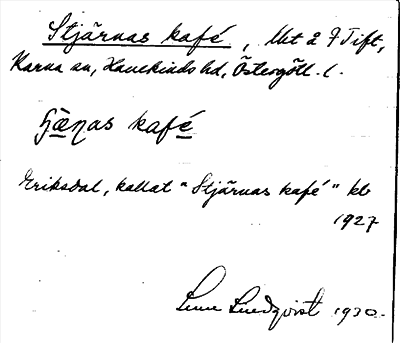 Stjärnas kafé, lht å F Tift,
Karna sn, Hanekinds hd, Östergötl. l.
ɧæ̱ɳas kafé̱
Eriksdal, kallat "Stjärnas kafé" kb
1927
Sune Lindqvist 1930.